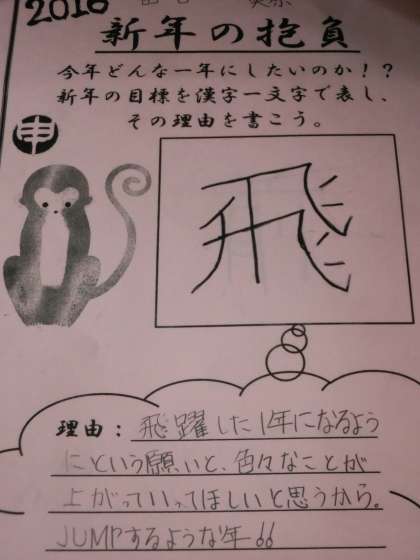 2016
新年の抱負
今年どんな一年にしたいのか!?
新年の目標を漢字一文字で表し、
その理由を書こう。
申
飛
理由:飛躍した1年になるよう
にという願いと、色々なことが
上がっていってほしいと思うから。
JUMPするような年